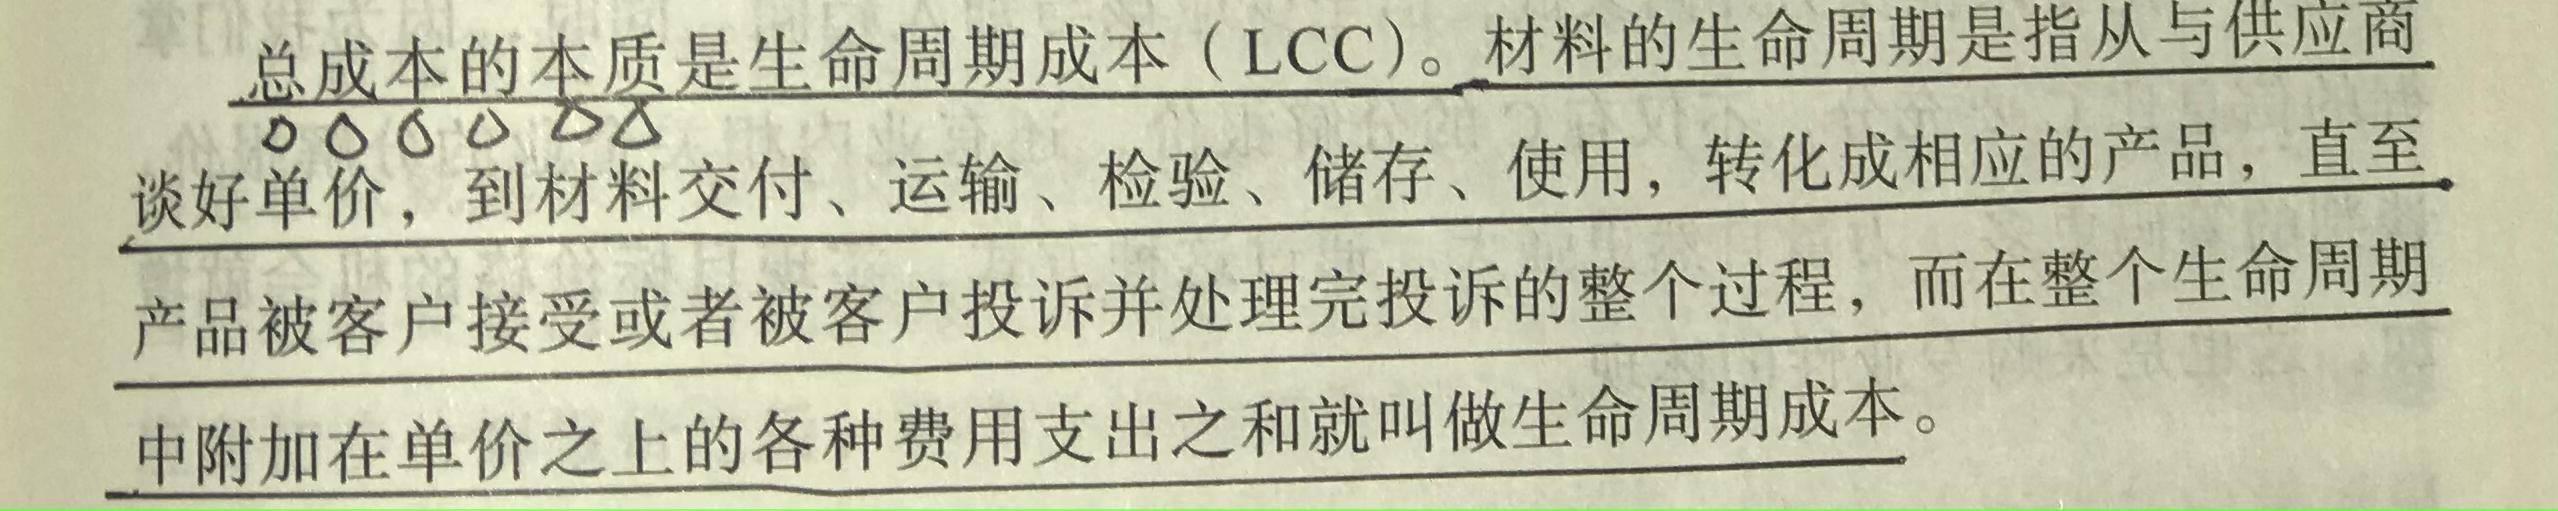 总成本的本质是生命周期成本（LCC）。材料的生命周期是指从与供应商
谈好单价，到材料交付、运输、检验、储存、使用，转化成相应的产品，直至
产品被客户接受或者被客户投诉并处理完投诉的整个过程，而在整个生命周期
中附加在单价之上的各种费用支出之和就叫做生命周期成本。